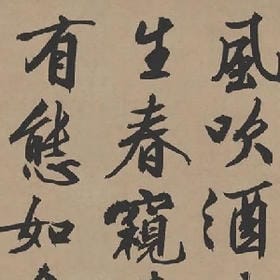 風吹酒
生春窺
有態如